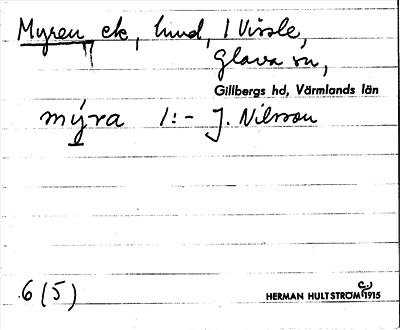 Myren, ek, hmd, 1 Vissle,
Glava sn,
Gillbergs hd, Värmlands län
mýra 1:- J. Nilsson
6 (5)
HERMAN HULTSTRÖM 1915